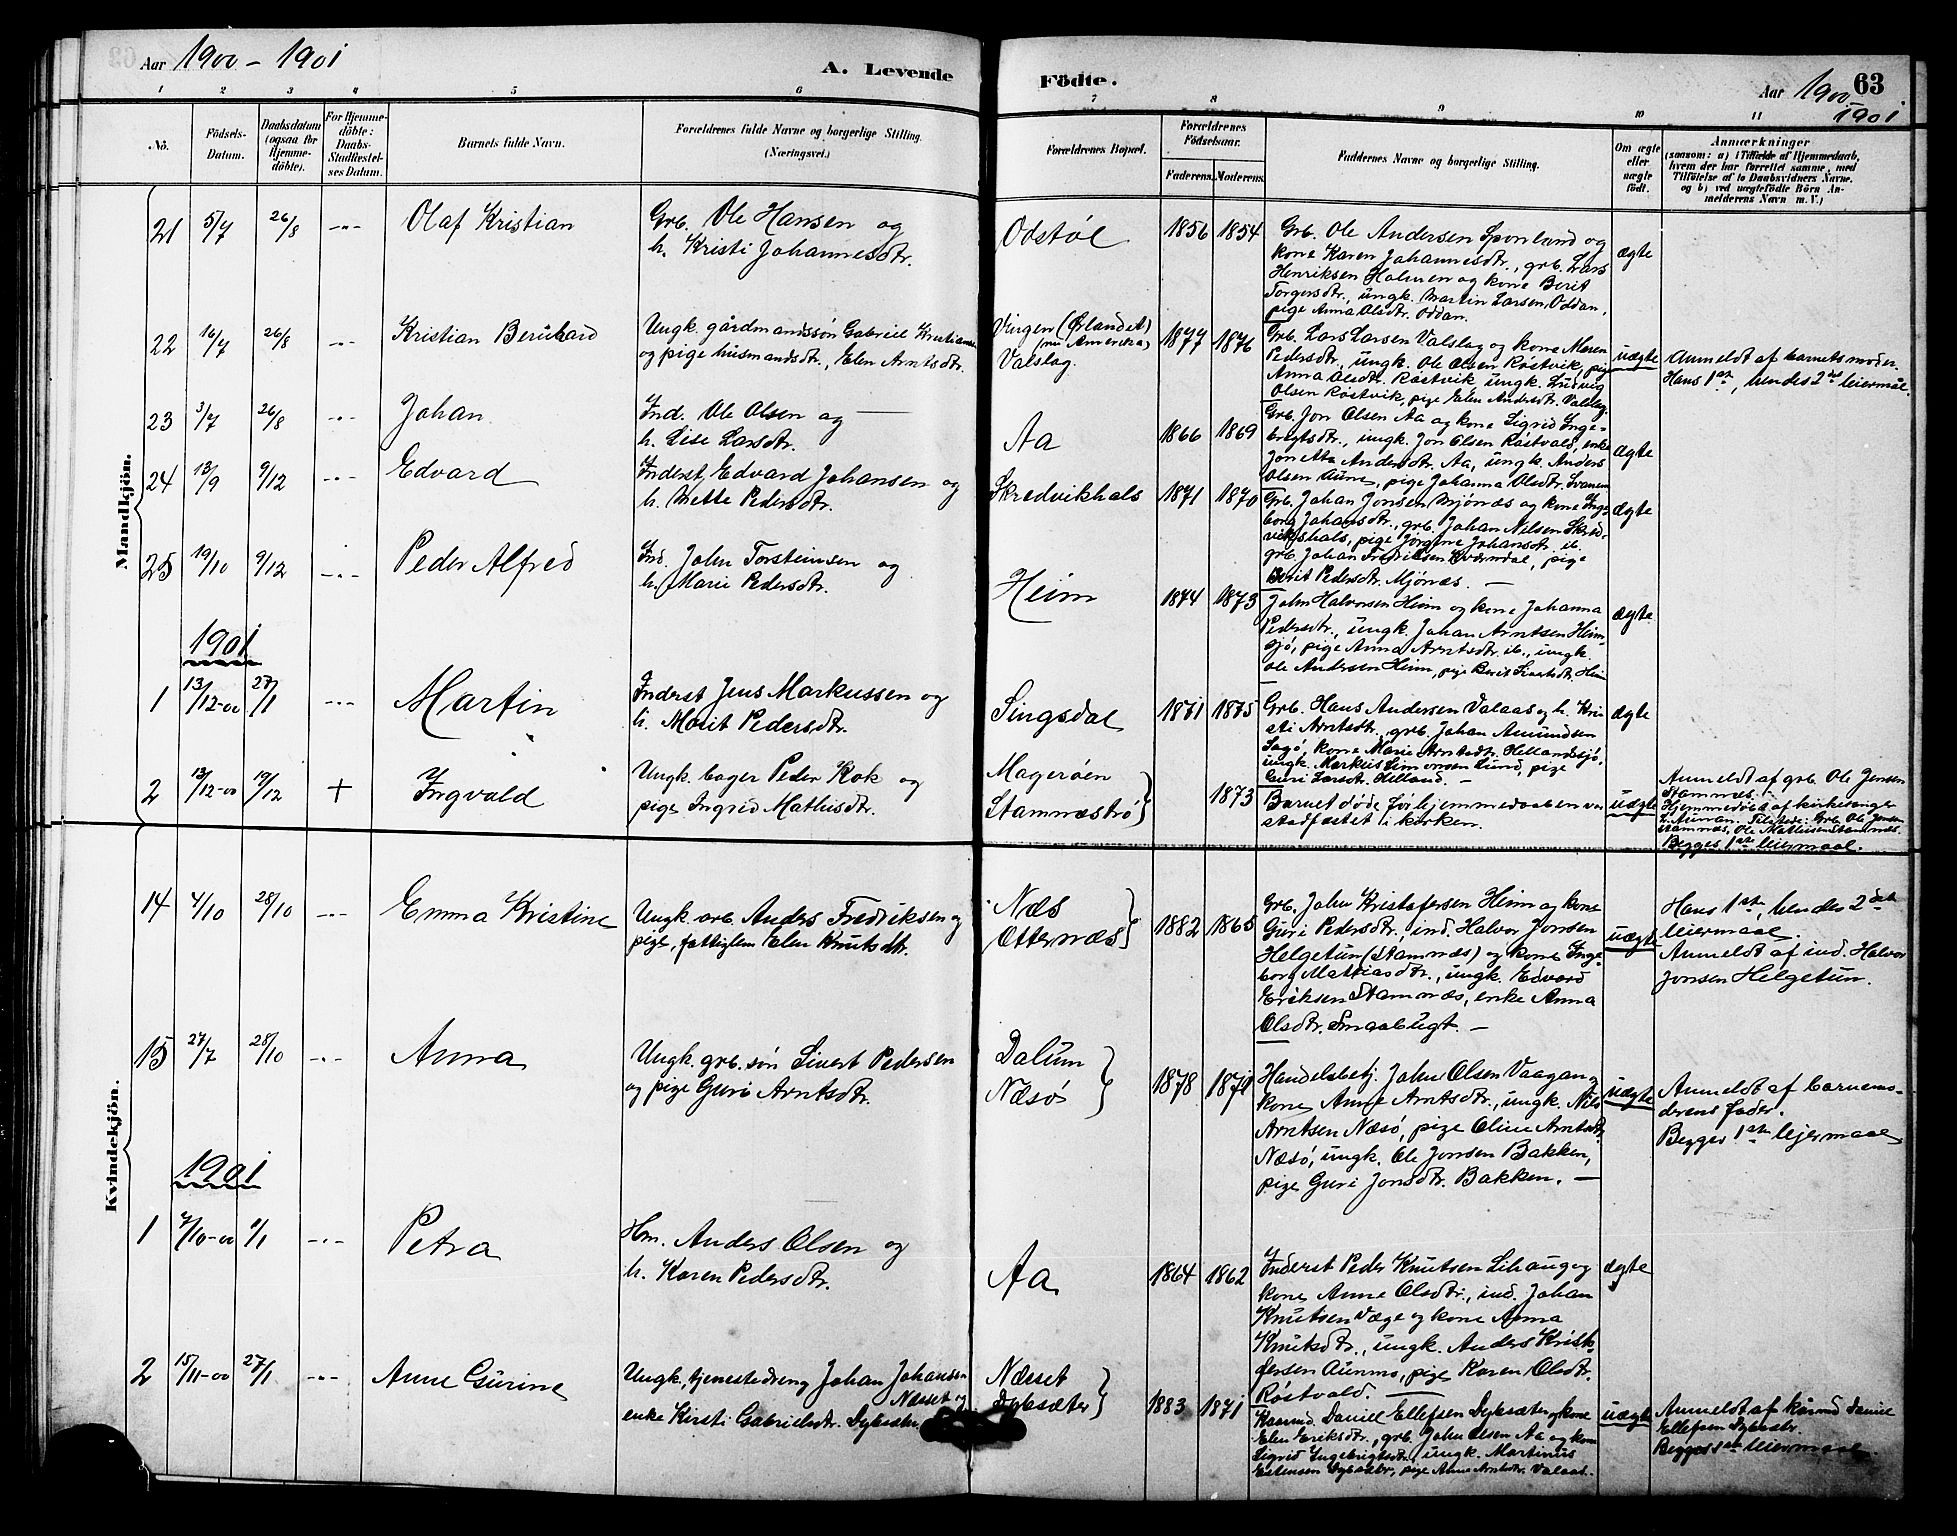 Aar 1900 - 1901
A. Levende
Födte.
Aar 1900 63
1901
1 2 3 4 5 6 7 8 9 10 11
No.
Födsels-
Datum.
Daabsdatum
(ogsaa for
Hjemme-
döbte).
For Hjemme-
döbte:
Daabs-
Stadfæstel-
ses Datum.
Barnets fulde Navn.
Forældrenes fulde Navne og borgerlige Stilling.
(Næringsvei.)
Forældrenes Bopæl.
Forældrenes
Födselsaar.
Faderens. Moderens.
Faddernes Navne og borgerlige Stilling.
Om ægte
eller
uægte
födt.
Anmærkninger
(saasom: a) i Tilfælde af Hjemmedaab,
hvem der har forrettet samme, med
Tilföielse af to Daabsvidners Navne.
og b) ved uægtefödte Börn An-
melderens Navn m. V.)
Mandkjön.
21 5/7 26/8 -"- Olaf Kristian
Grb. Ole Hansen og
h. Kristi Johannesdtr.
Odstøl
1856 1854
Grb. Ole Andersen Sponland og
kone Karen Johannesdtr., grb. Lars
Henriksen Holmen og kone Berit
Torgersdtr., ungk. Martin Larsen, Oddan,
pige Anna Olsdtr. Oddan.
ægte
22 16/7 26/8 -"- Kristian Bernhard
Ungk. gårdmandssøn Gabriel Kristiansen
og pige husmandsdtr., Elen Arntsdtr.
Vingen (Ørlandet)
(nu Amerika)
Valslag.
1877 1876
Grb. Lars Larsen Valslag og kone Maren
Pedersdtr., ungk. Ole Olsen Röstvik, pige
Anna Olsdtr. Röstvik, ungk. Ludvig
Olsen Röstvik, pige Elen Andersdtr. Valslag.
uægte
Anmeldt af barnets moder.
Hans 1ste, hendes 2det leiermål.
23 3/7 26/8 -"- Johan
Ind. Ole Olsen og —
h. Lise Larsdtr.
Aa
1866 1869
Grb. Jon Olsen Aa og kone Sigrid Inge-
brigtsdtr., ungk. Jon Olsen Röstvald, enke
Jonetta Andersdtr. Aa, ungk. Anders
Olsen Aune, pige Johanna Olsdtr. Svanem
ægte
24 13/9 9/12 -"- Edvard
Inderst Edvard Johansen og
h. Mette Pedersdtr.
Skredvikhals
1871 1870
Grb. Johan Jonsen Mjönæs og kone Inge-
borg Johansdtr., grb. Johan Nilsen Skred-
vikshals, pige Jörgine Johansdtr. ib.
grb. Johan Fredriksen Kværndal, pige
Berit Pedersdtr. Mjönæs. —
ægte
25 19/10 9/12 -"- Peder Alfred
Ind. John Torsteinsen og
h. Marie Pedersdtr.
Heim
1844 1873
John Halvorsen Heim og kone Johanna
Pedersdtr., ungk. Johan Arntsen Heim-
sjö, pige Anna Arntsdtr. ib., ungk.
Ole Andersen Heim, pige Berit Sivertsdtr. Heim
ægte
1901
1 13/12-00 27/1 -"- Martin
Inderst Jens Markussen og
h. Marit Pedersdtr.
Singsdal
1871 1875
Grb. Hans Andersen Valaas og h. Kri-
sti Arntsdtr., grb. Johan Amundsen
Sagö, kone Marie Arntsdtr. Hellandsjö,
ungk. Markus Simonsen Lund, pige
Guri Larsdtr. Hilland. —
ægte
2 13/12-00 19/12 + Ingvald
Ungk. bager Peder Kok og
pige Ingrid Mathisdtr.
Magerøen
Stamnæstrø
1873
Barnet døde før hjemmedaaben var
stadfæstet i kirken.
uægte
Anmeldt af grb. Ole Jensen
Stamnæs.
Hjemmedøbt af kirkesanger
L. Aunan. Tilstede: Grb. Ole Jensen
Stamnæs, Ole Mathisen Stamnæs.
Begges 1ste leiermaal.
Kvindekjön.
14 4/10 28/10 -"- Emma Kristine
Ungk. arb. Anders Fredriksen og
pige, fattiglem Elen Knutsdtr.
Næs
Otternæs
1882 1865
Grb. John Kristofersen Heim og kone
Guri Pedersdtr., ind. Halvor Jonsen
Helgetun (Stamnæs) og kone Inge-
borg Mathiasdtr., ungk. Edvard
Eriksen Stamnæs, enke Anna
Olsdtr. Smaabugt. —
uægte
Hans 1ste, hendes 2det
leiermaal.
Anmeldt af ind. Halvor
Jonsen Helgetun.
15 27/7 28/10 -"- Anna
Ungk. grb. søn Sivert Pedersen
og pige Guri Arntsdtr.
Dalum
Næsø
1878 1870
Handelsbetj. John Olsen Vaagan og
kone Anne Arntsdtr., ungk. Nils
Arntsen Næsö, pige Oline Arntsdtr.
Næsö, ungk. Ole Jonsen Bakken,
pige Guri Jonsdtr. Bakken. —
uægte
Anmeldt af barnemo-
derens fader.
Begges 1ste lejermaal
1901
1 4/10-00 1/1 -"- Petra
Hm. Anders Olsen og
h. Karen Pedersdtr.
Aa
1864 1862
Inderst Peder Knutsen Lihaug og
kone Anne Olsdtr., ind. Johan
Knutsen Væge og kone Anna
Knutsdtr., ungk. Anders Krist-
offersen Aunmo, pige Karen Olsdtr.
Röstvald. —
ægte
2 15/11-00 27/1 -"- Anne Gurine
Ungk. tjenestedreng Johan Johansen
Næsset og
enke Kirsti Gabrielsdtr. Dybsæter
Næsset
Dybsæter
1883 1871
Kaarmd. Daniel Ellefsen Dybsæter og kone
Elen Eriksdtr., grb. John Olsen Aa og kone
Sigrid Ingebrigtsdtr., ungk. Martinus
Estensen Dybsæter, pige Anne Arntsdtr. Valaas.
uægte
Anmeldt af kårmd Daniel
Ellefsen Dybsæter.
Begges 1ste leiermaal.